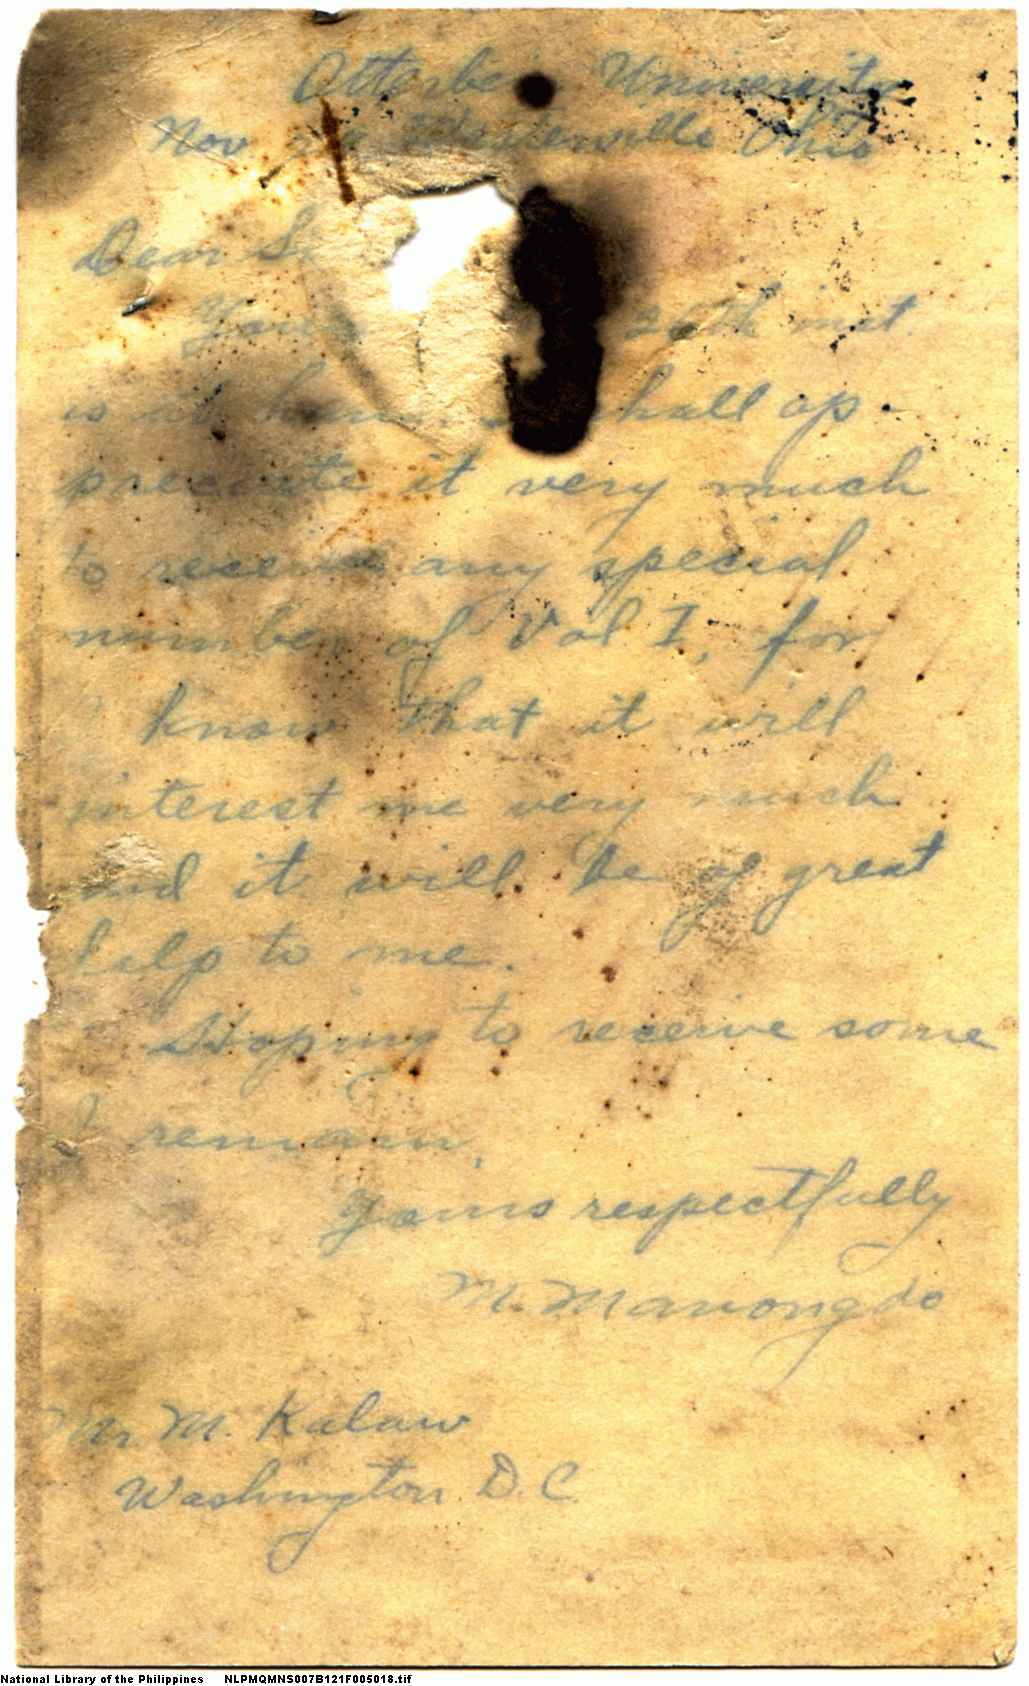 Otterbe University
Nov Westerville Ohio
Dear Si
You 26th inst.
is at han shall ap
preciate it very much
to receive any special
number of Vol I, for
I know that it will
interest me very much
and it will be of great
help to me.
Hoping to receive some
I remain,
Yours respectfully
M. Manongdo
Mr. M. Kalaw
Washington D.C.
National Library of the Philippines NLPMQMNS007B121F005018.tif